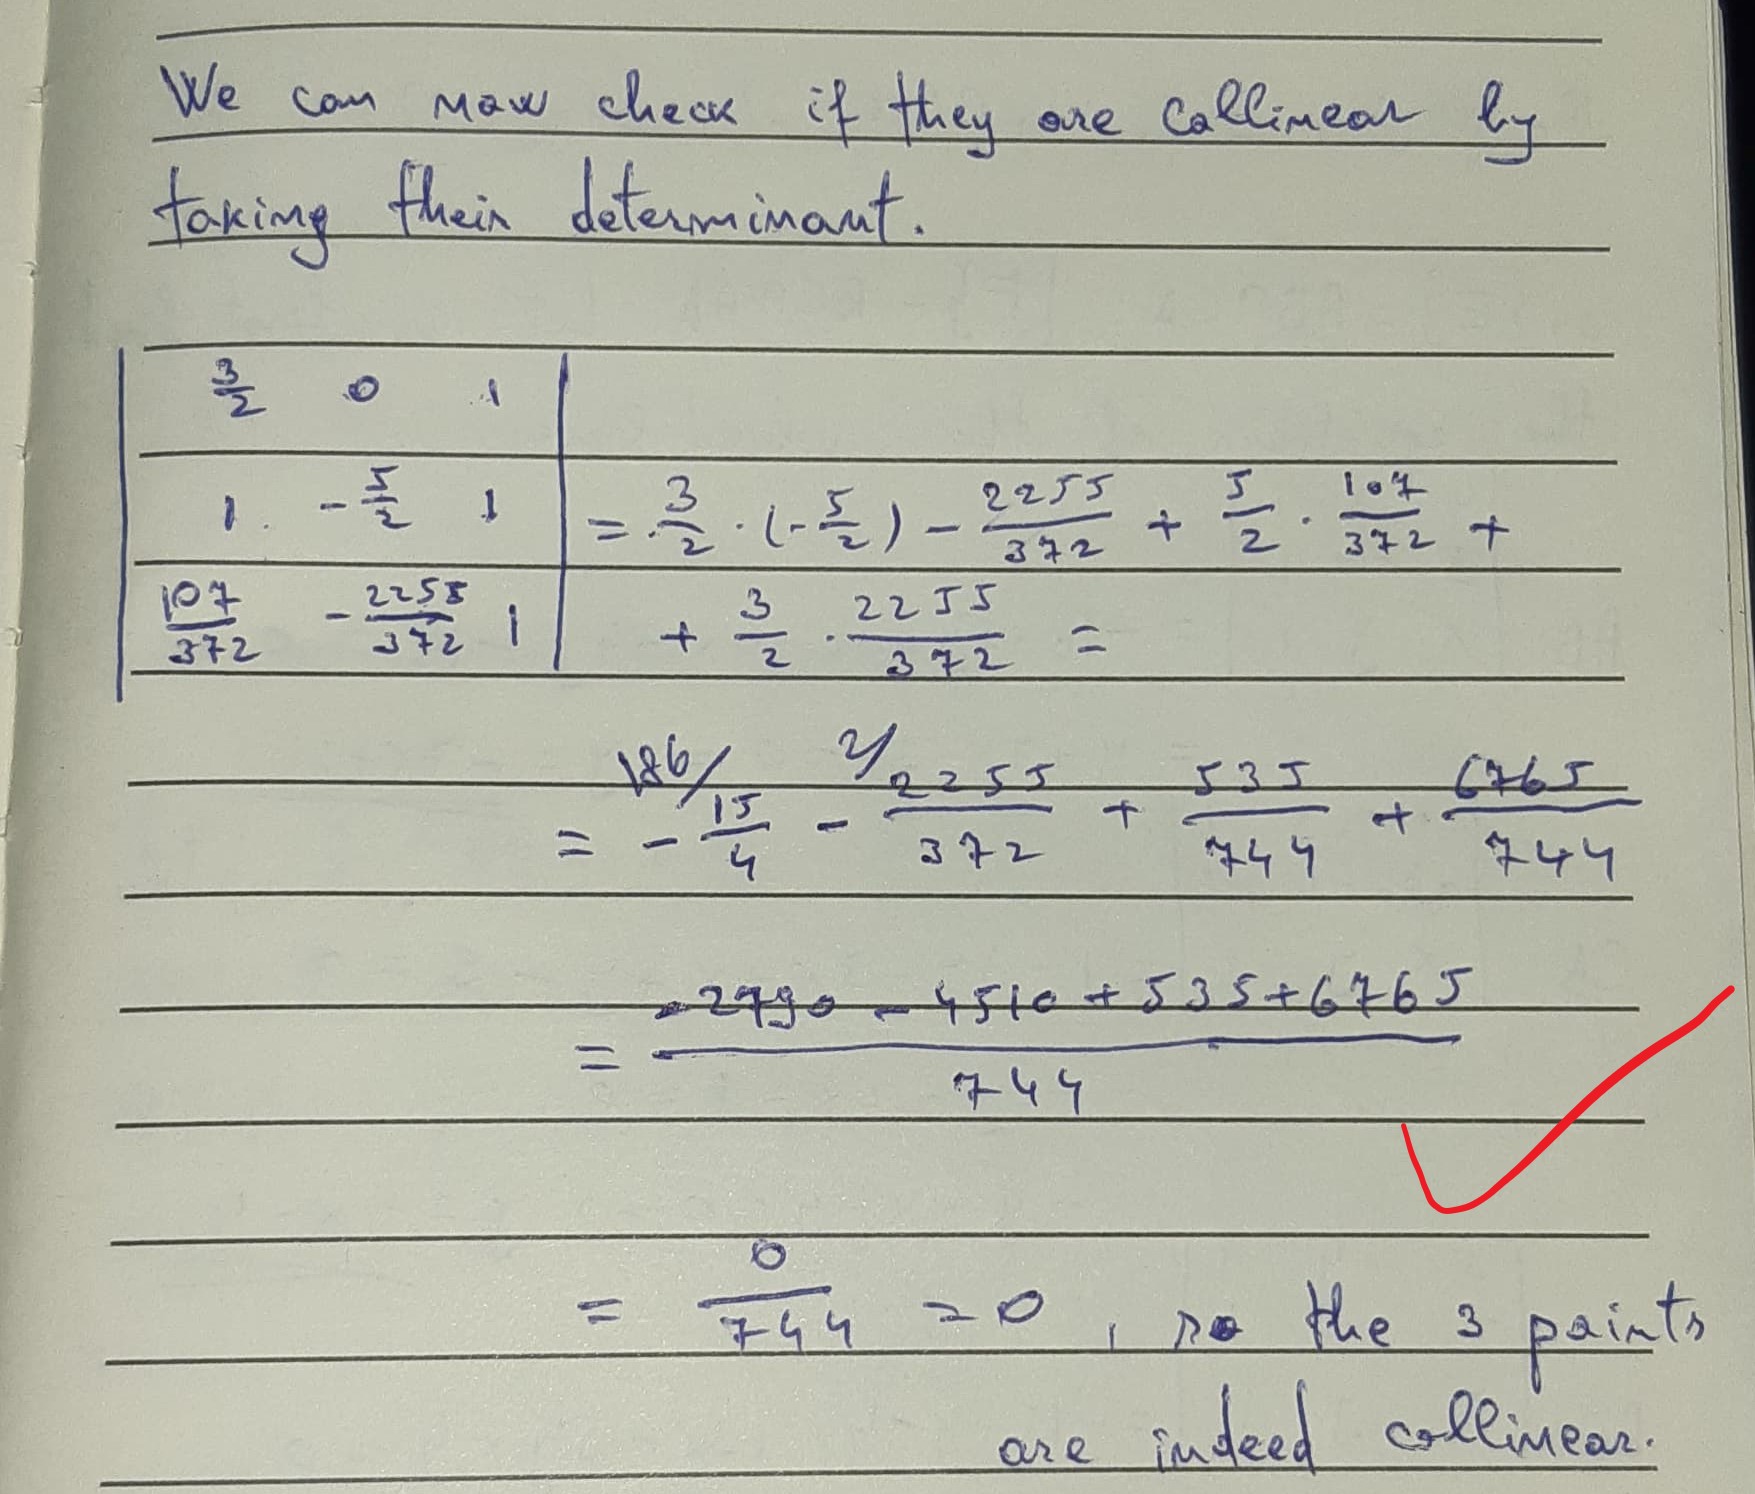 We can now check if they are collinear by
taking their determinant.
| 3/2 0 1 |
| 1 -5/2 1 | = 3/2 · (-5/2) - 2255/372 + 5/2 · 107/372 +
| 107/372 -2255/372 1 | + 3/2 · 2255/372 =
= - 186/ 15/4 - 2/ 2255/372 + 535/744 + 6765/744
= (-2790 - 4510 + 535 + 6765)/744
= 0/744 = 0, so the 3 points
are indeed collinear.